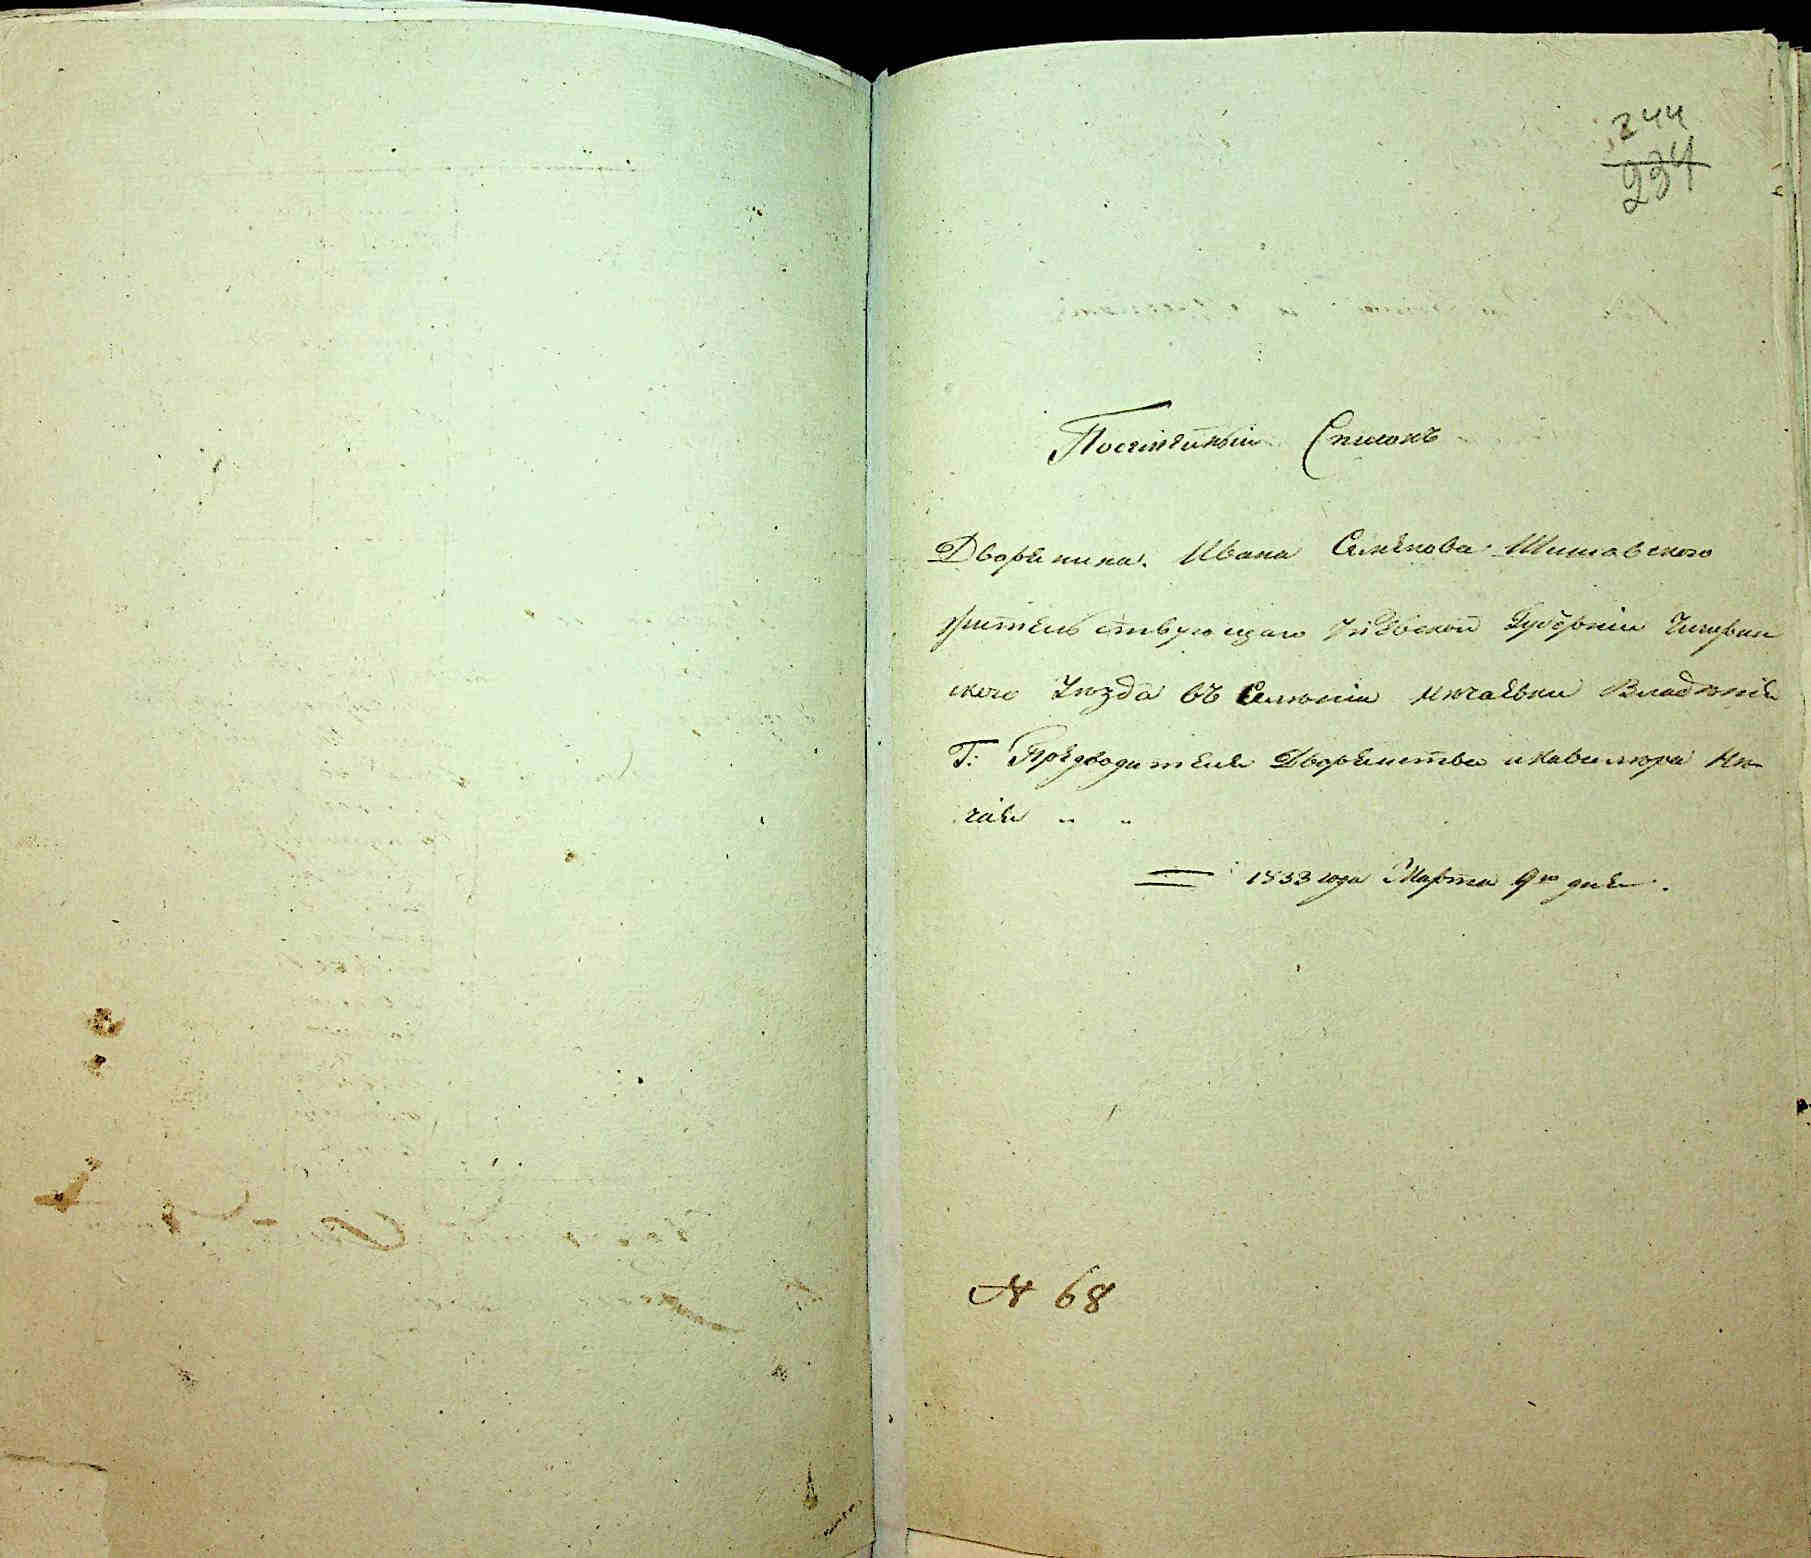 244
234
Посемейный Списокъ
Дворянина Ивана Семенова Шишовского
жительствующаго Киевской Губернии Чигирин
ского Уезда въ Селении Нечаевки Владения
Г: Предводителя Дворянства и Кавалера Не
чая „ „
1833 года Марта 9го дня.
№ 68